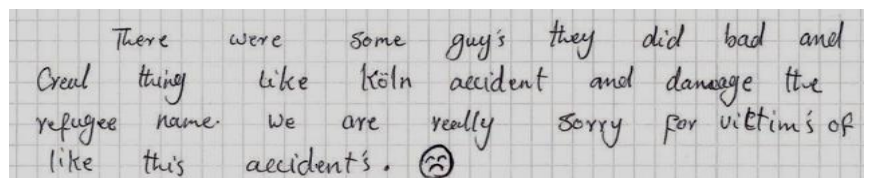 There were some guy's they did bad and
Creul thing like Köln accident and damage the
refugee name. We are really sorry for victim's of
like this accident's. ☹